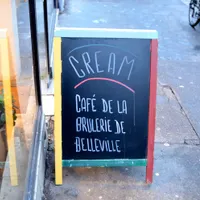 CREAM
CAFÉ DE LA
BRULERIE DE
BELLEVILLE